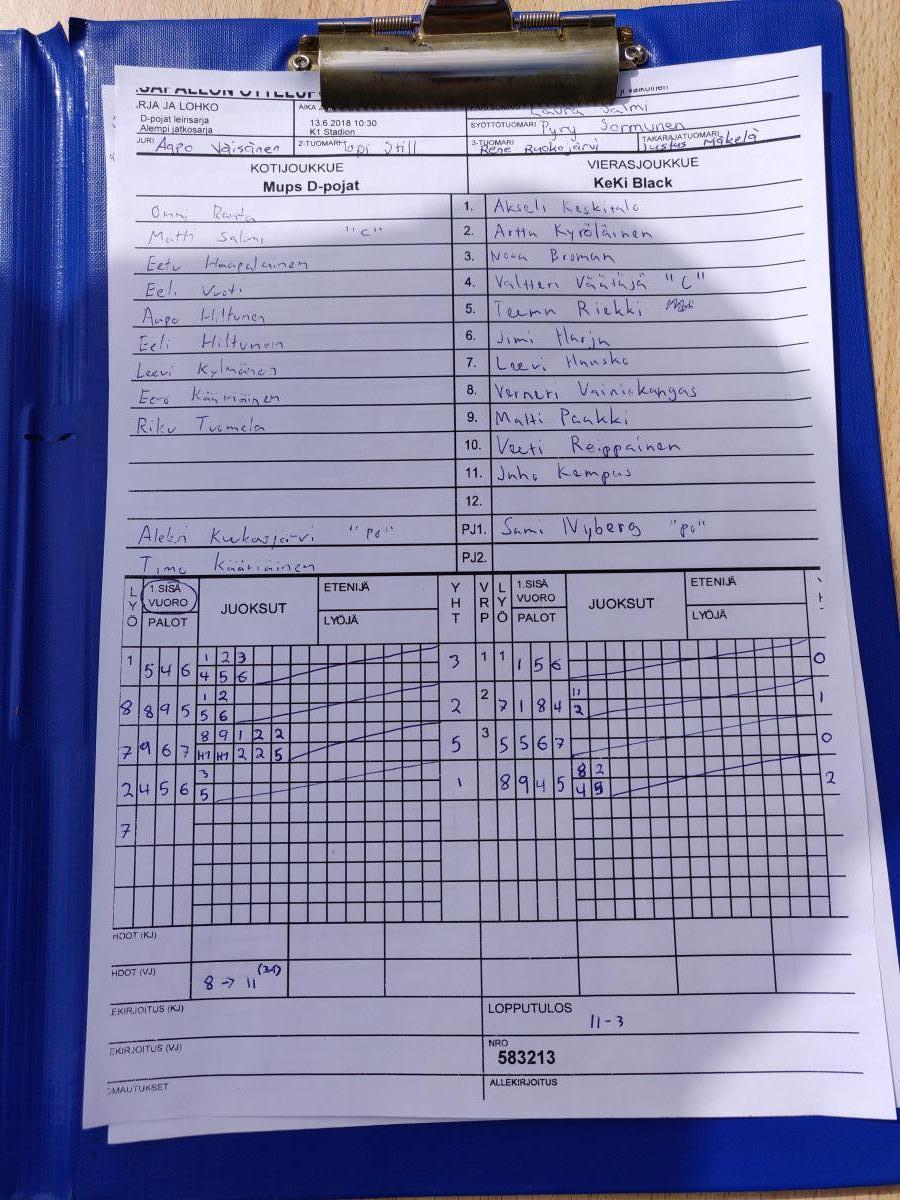 RJA JA LOHKO
D-pojat leirisarja
Alempi jatkosarja
AIKA
13.6.2018 10:30
K1 Stadion
Laura Salmi
SYÖTTÖTUOMARI Pyry Sormunen
JURI Aapo Väisänen 2-TUOMARI Topi Still 3-TUOMARI Rene Ruokojärvi TAKARAJATUOMARI Justus Mäkelä
KOTIJOUKKUE VIERASJOUKKUE
Mups D-pojat KeKi Black
Onni Ranta 1. Akseli Keskitalo
Matti Salmi "C" 2. Arttu Kyröläinen
Eetu Haapalainen 3. Nooa Broman
Eeli Vuoti 4. Valtteri Väätäjä "C"
Aapo Hiltunen 5. Teemu Riekki
Eeli Hiltunen 6. Jimi Harju
Leevi Kylmänen 7. Leevi Hansko
Eero Kääriäinen 8. Verneri Vainiokangas
Riku Tuomela 9. Matti Paakki
10. Veeti Reippainen
11. Juho Kempus
12.
Aleksi Kuukasjärvi "PJ" PJ1. Sami Nyberg "PJ"
Timo Kääriäinen PJ2.
LYÖ 1.SISÄ VUORO JUOKSUT ETENIJÄ YHT VRP LYÖ 1.SISÄ VUORO JUOKSUT ETENIJÄ
PALOT LYÖJÄ PALOT LYÖJÄ
1 5 4 6 1 2 3 3 1 1 1 5 6 0
4 5 6
8 8 9 5 1 2 2 2 7 1 8 4 11 1
5 6 2
7 9 6 7 8 9 1 2 2 5 3 5 5 6 7 0
H1 H1 2 2 5
2 4 5 6 3 1 8 9 4 5 8 2 2
5 4 5
7
HDOT (KJ)
HDOT (VJ) 8 → 11 (3A)
EKIRJOITUS (KJ) LOPPUTULOS
11-3
EKIRJOITUS (VJ) NRO
583213
OMAUTUKSET ALLEKIRJOITUS